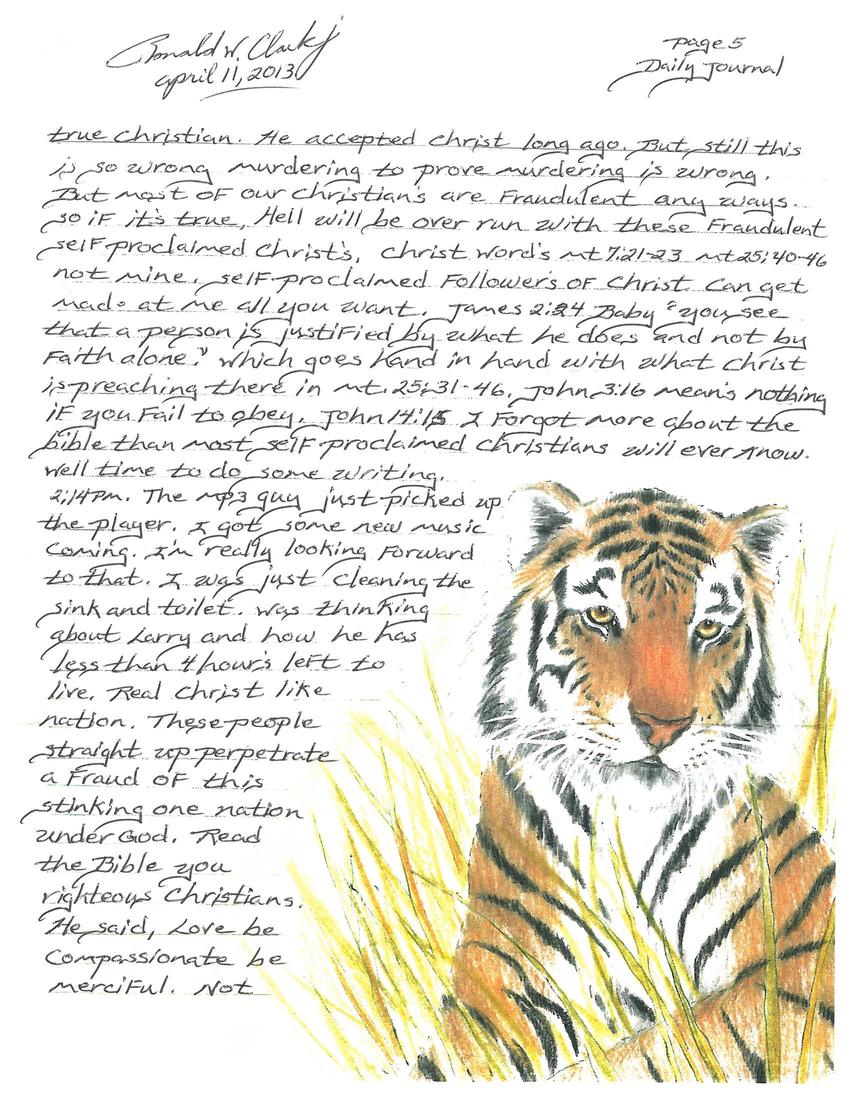 Ronald W. Clark Jr
april 11, 2013
page 5
Daily Journal
true Christian. He accepted Christ long ago. But still this
is so wrong murdering to prove murdering is wrong.
But most of our Christian's are Fraudulent any ways.
so if it's true, Hell will be over run with these Fraudulent
self-proclaimed Christ's, Christ word's mt 7:21-23 mt 25:40-46
not mine. self-proclaimed Follower's of Christ. Can get
made at me all you want. James 2:24 Baby "you see
that a person is justified by what he does and not by
Faith alone." which goes hand in hand with what Christ
is preaching there in mt. 25:31-46. John 3:16 mean's nothing
if you Fail to obey. John 14:15 I Forgot more about the
bible than most self-proclaimed Christians will ever know.
well time to do some writing.
2:14 pm. The mp3 guy just picked up
the player. I got some new music
coming. I'm really looking Forward
to that. I was just cleaning the
sink and toilet. was thinking
about Larry and how he has
less than 4 hour's left to
live. Real Christ like
nation. These people
straight up perpetrate
a Fraud of this
stinking one nation
under God. Read
the Bible you
righteous Christians.
He said, Love be
Compassionate be
merciful. Not